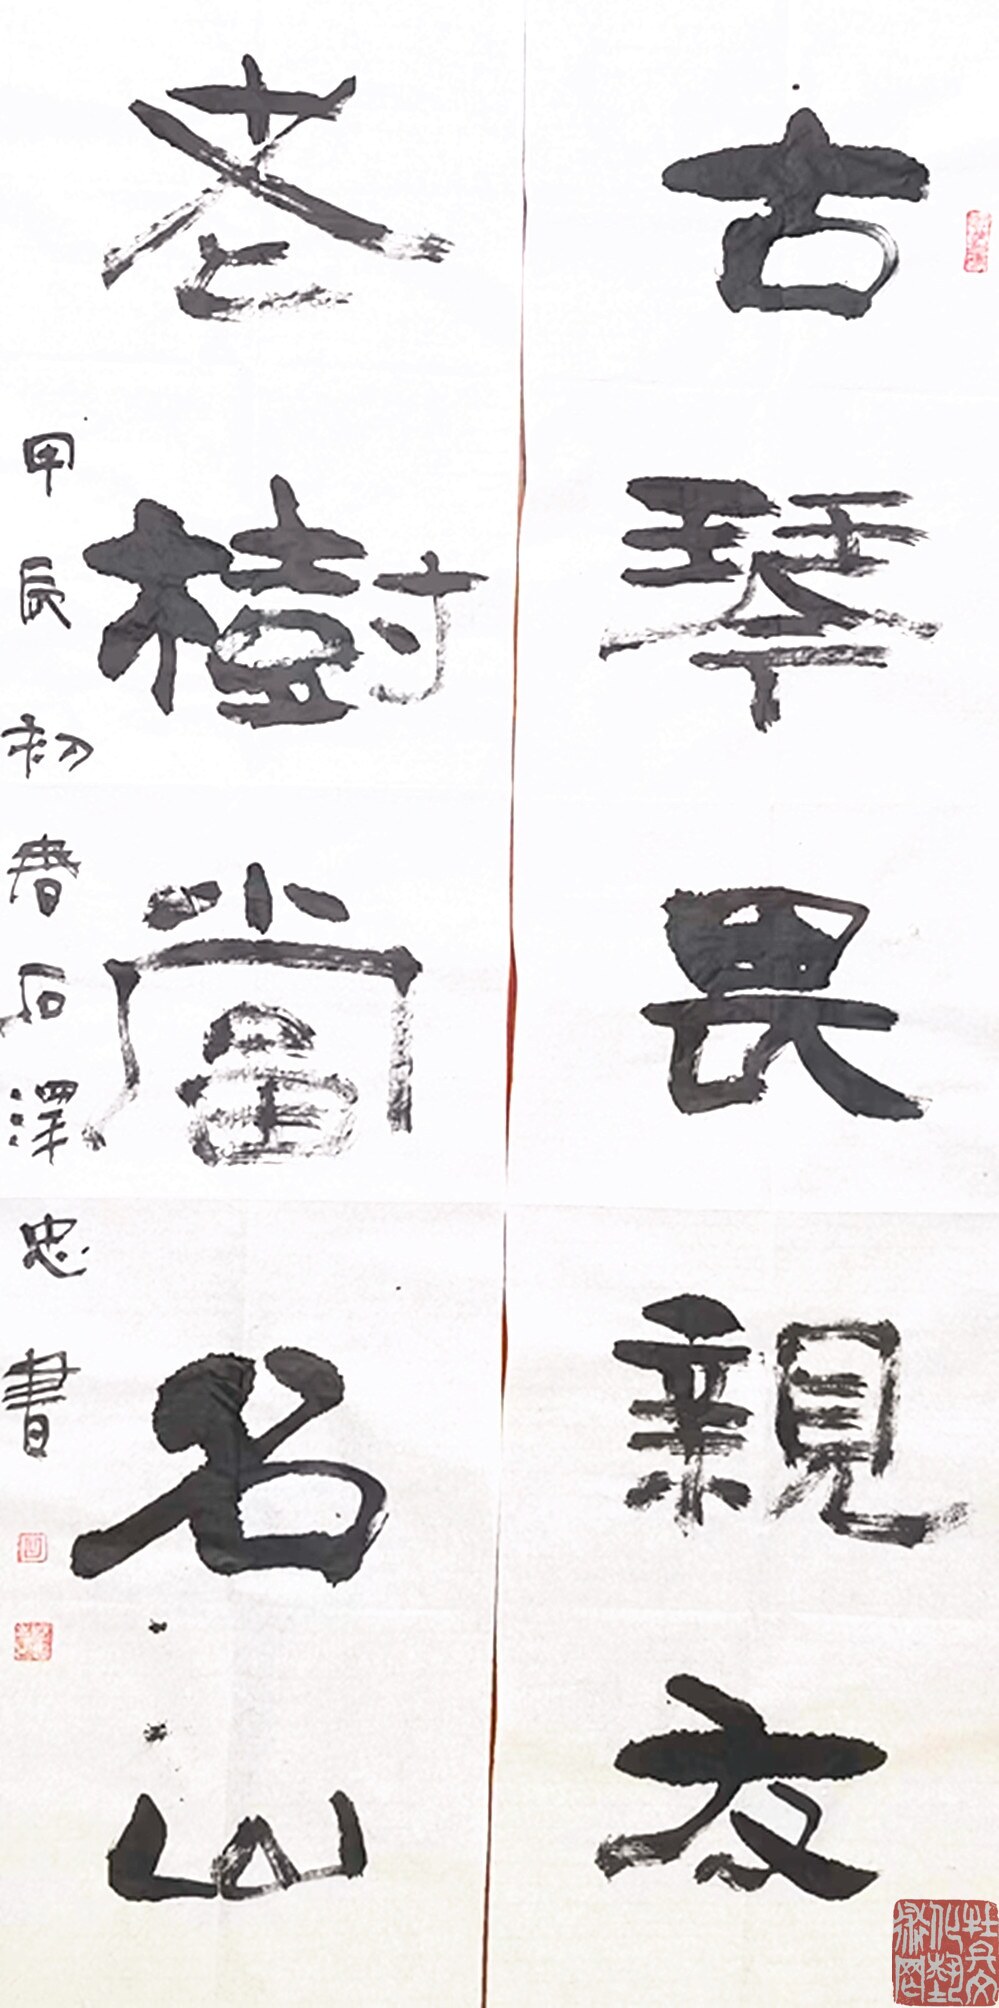 古琴畏親友
老樹當名山
甲辰初春石澤忠書